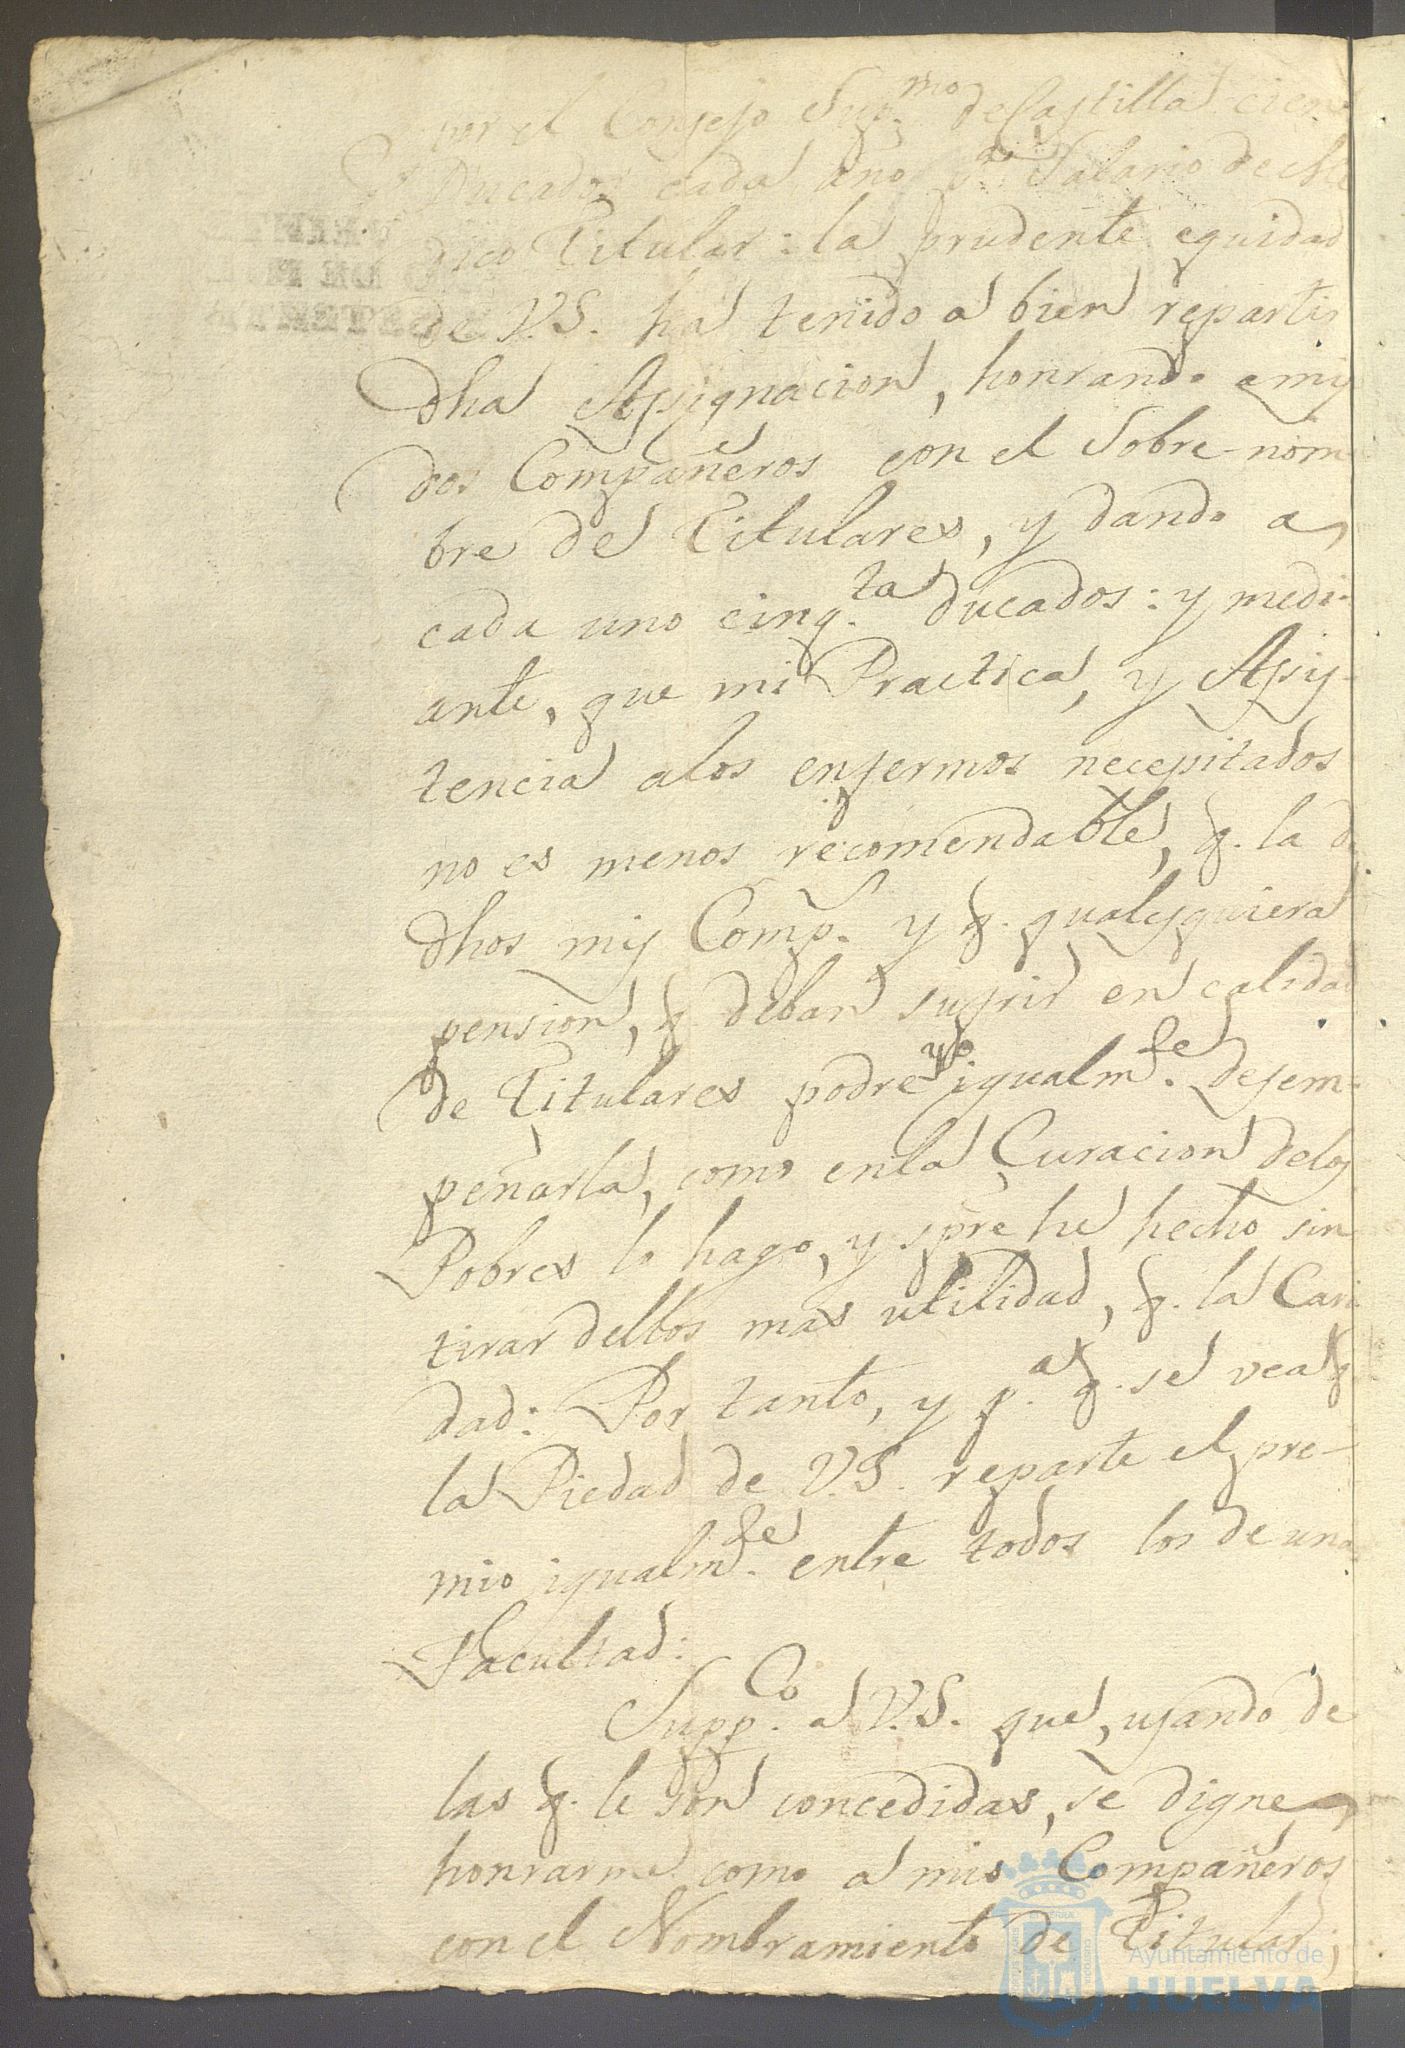 por el Consejo Sup.mo de Castilla cien
Ducados cada año p.a Salario de Me
dico Titular: la prudente equidad
de V.S. ha tenido a bien repartir
dha Assignacion, honrando a mis
dos Compañeros con el Sobre-nom
bre de Titulares, y dando a
cada uno cinq.ta ducados: y medi-
ante, que mi Practica, y Assis-
tencia a los enfermos necessitados
no es menos recomendable, q. la d
dhos mis Comp.s y q. qualesquiera
pension, q deban sufrir en calidad
de Titulares podre yo igualm.te desem-
peñarla, como en la Curacion de los
Pobres lo hago, y spre he hecho sin
tirar dellos mas utilidad, q. la Cari
dad: Por tanto, y p.a q. se vea q
la Piedad de V.S. reparte el pre-
mio igualm.te entre todos los de una
Facultad:
Supp.co a V.S. que, usando de
las q. le son concedidas, se digne
honrarme como a mis Compañeros
con el Nombramiento de Titular;
Ayuntamiento de
HUELVA